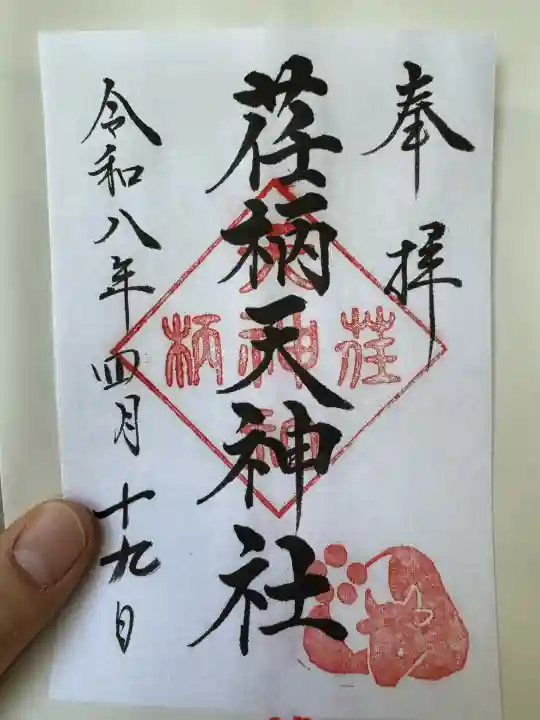 奉拝
荏柄天神社
令和八年四月十九日
荏
柄
天
神